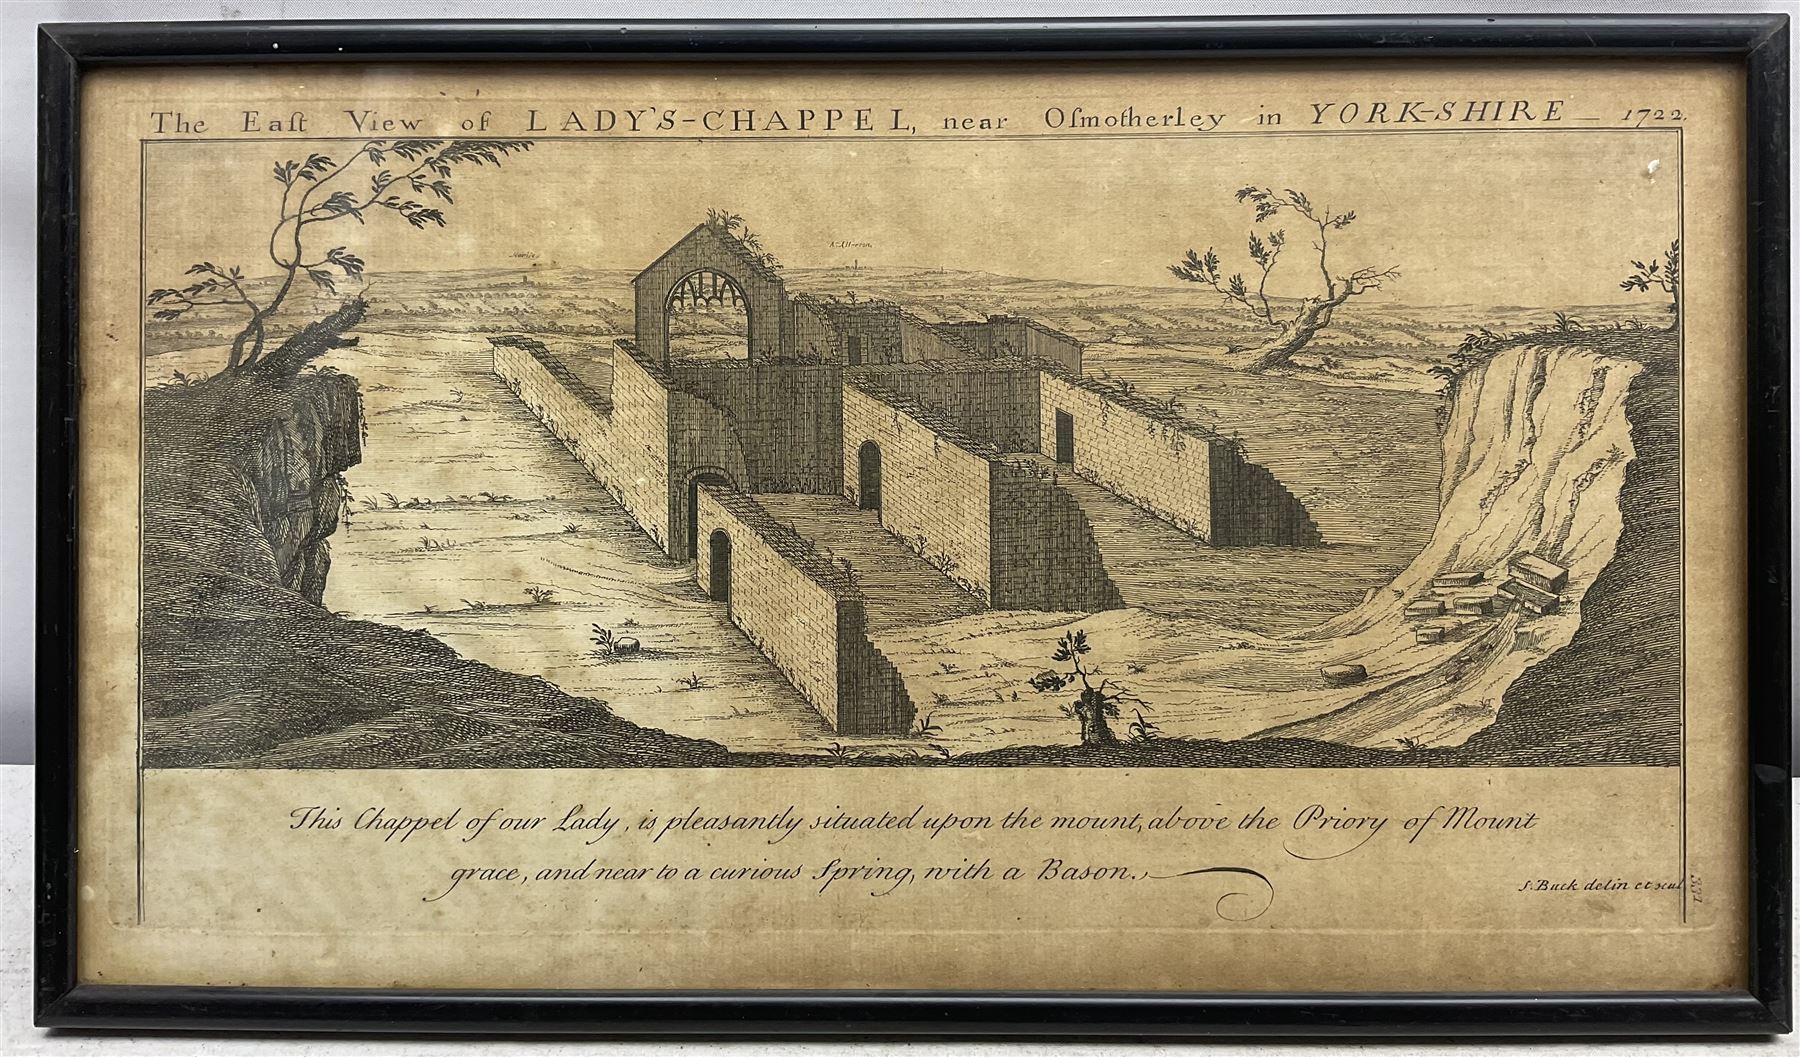 The Eaſt View of LADY'S-CHAPPEL, near Oſmotherley in YORK-SHIRE — 1722.
This Chappel of our Lady, is pleasantly situated upon the mount, above the Priory of Mount
grace, and near to a curious Spring, with a Bason.
S. Buck delin et scul
331